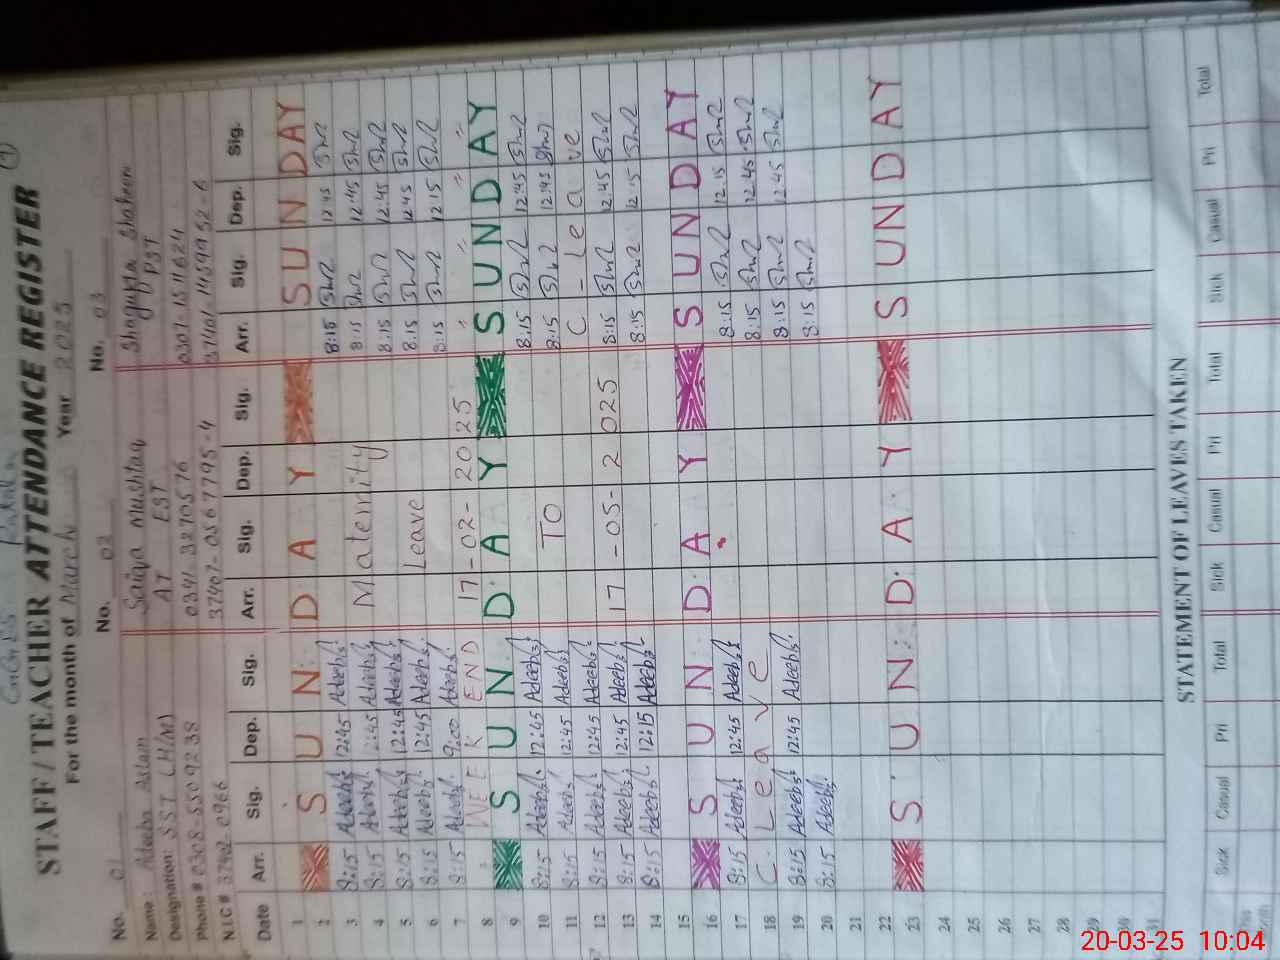 STAFF / TEACHER ATTENDANCE REGISTER
For the month of March Year 2025
No. 01 No. 02 No. 03
Name: Adeeba Aslam Saiqa Mushtaq Shagufta Shaheen
Designation: SST (H/M) AT EST PST
Phone # 0308-5509238 0341 3270576 0307-1511624
N.I.C # 37402-0966 37407-0567795-4
Date Arr. Sig. Dep. Sig. Arr. Sig. Dep. Sig. Arr. Sig. Dep. Sig.
1
2 SUN: D A Y SUNDAY
3 8:15 Adeeba 12:45 Adeeba 8:15 12:45
4 8:15 Adeeba 12:45 Adeeba Maternity 8:15 12:45
5 8:15 Adeeba 12:45 Adeeba 8:15 12:45
6 8:15 Adeeba 12:45 Adeeba Leave 8:15 12:45
7 8:15 Adeeba 9:00 Adeeba 8:15 12:15
8 WEEK END 17-02-2025 " " " "
9 SUN D.A Y SUNDAY
10 8:15 Adeeba 12:45 Adeeba 8:15 12:45
11 8:15 Adeeba 12:45 Adeeba TO 8:15 12:45
12 8:15 Adeeba 12:45 Adeeba C - Leave
13 8:15 Adeeba 12:45 Adeeba 17-05-2025 8:15 12:45
14 8:15 Adeeba 12:15 Adeeba 8:15 12:15
15
16 SUN: D.A Y SUNDAY
17 8:15 Adeeba 12:45 Adeeba 8:15 12:15
18 C. Leave 8:15 12:45
19 8:15 Adeeba 12:45 Adeeba 8:15 12:45
20 8:15 Adeeba 8:15
21
22
23 SUN: D.A.Y SUNDAY
24
25
26
27
28
29
30
31
STATEMENT OF LEAVES TAKEN
Sick Casual Pri Total Sick Casual Pri Total Sick Casual Pri Total
20-03-25 10:04